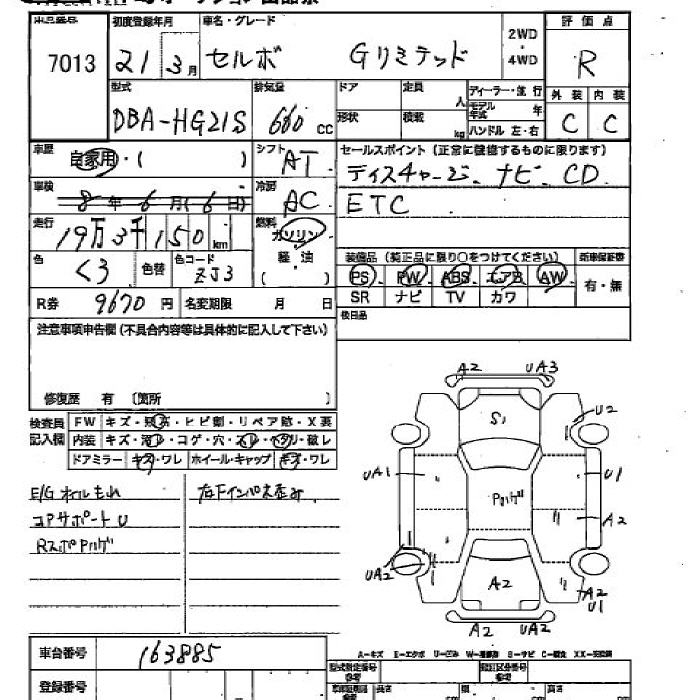 7013
初度登録年月 21年 3月
車名・グレード セルボ Gリミテッド
2WD・4WD
評価点 R
型式 DBA-HG21S
排気量 660 cc
ドア 定員 人
形状 積載 kg
ディーラー・並行
モデル年式 年
ハンドル 左・右
外装 内装
C C
車歴 自家用・( )
シフト AT
セールスポイント (正常に機能するものに限ります)
ディスチャージ、ナビ、CD
ETC
車検 8年 6月 (6日)
冷房 AC
走行 19万3千150km
燃料 ガソリン
軽油
( )
色 くろ 色替
色コード ZJ3
装備品 (純正品に限り○をつけてください) 新車保証書
PS PW ABS エアB AW 有・無
SR ナビ TV カワ
R券 9670円 名変期限 月 日
後日品
注意事項申告欄 (不具合内容等は具体的に記入して下さい)
修復歴 有 〔箇所
検査員記入欄
FW キズ・飛石・ヒビ割・リペア跡・X要
内装 キズ・汚レ・コゲ・穴・スレ・ヘタリ・破レ
ドアミラー キズ・ワレ ホイール・キャップ キズ・ワレ
E/Gオイルもれ
コアサポートU
RスポPハゲ
右下インパネ歪み
A2 UA3
S1
U2
UA1
U1
Pハゲ
A2
UA2
A2
A2
U1
A2 UA2
A-キズ E-エクボ U-凹み W-補修跡 S-サビ C-腐食 XX-交換済
車台番号 163885
登録番号
型式指定番号
類別区分番号
長さ 幅 高さ